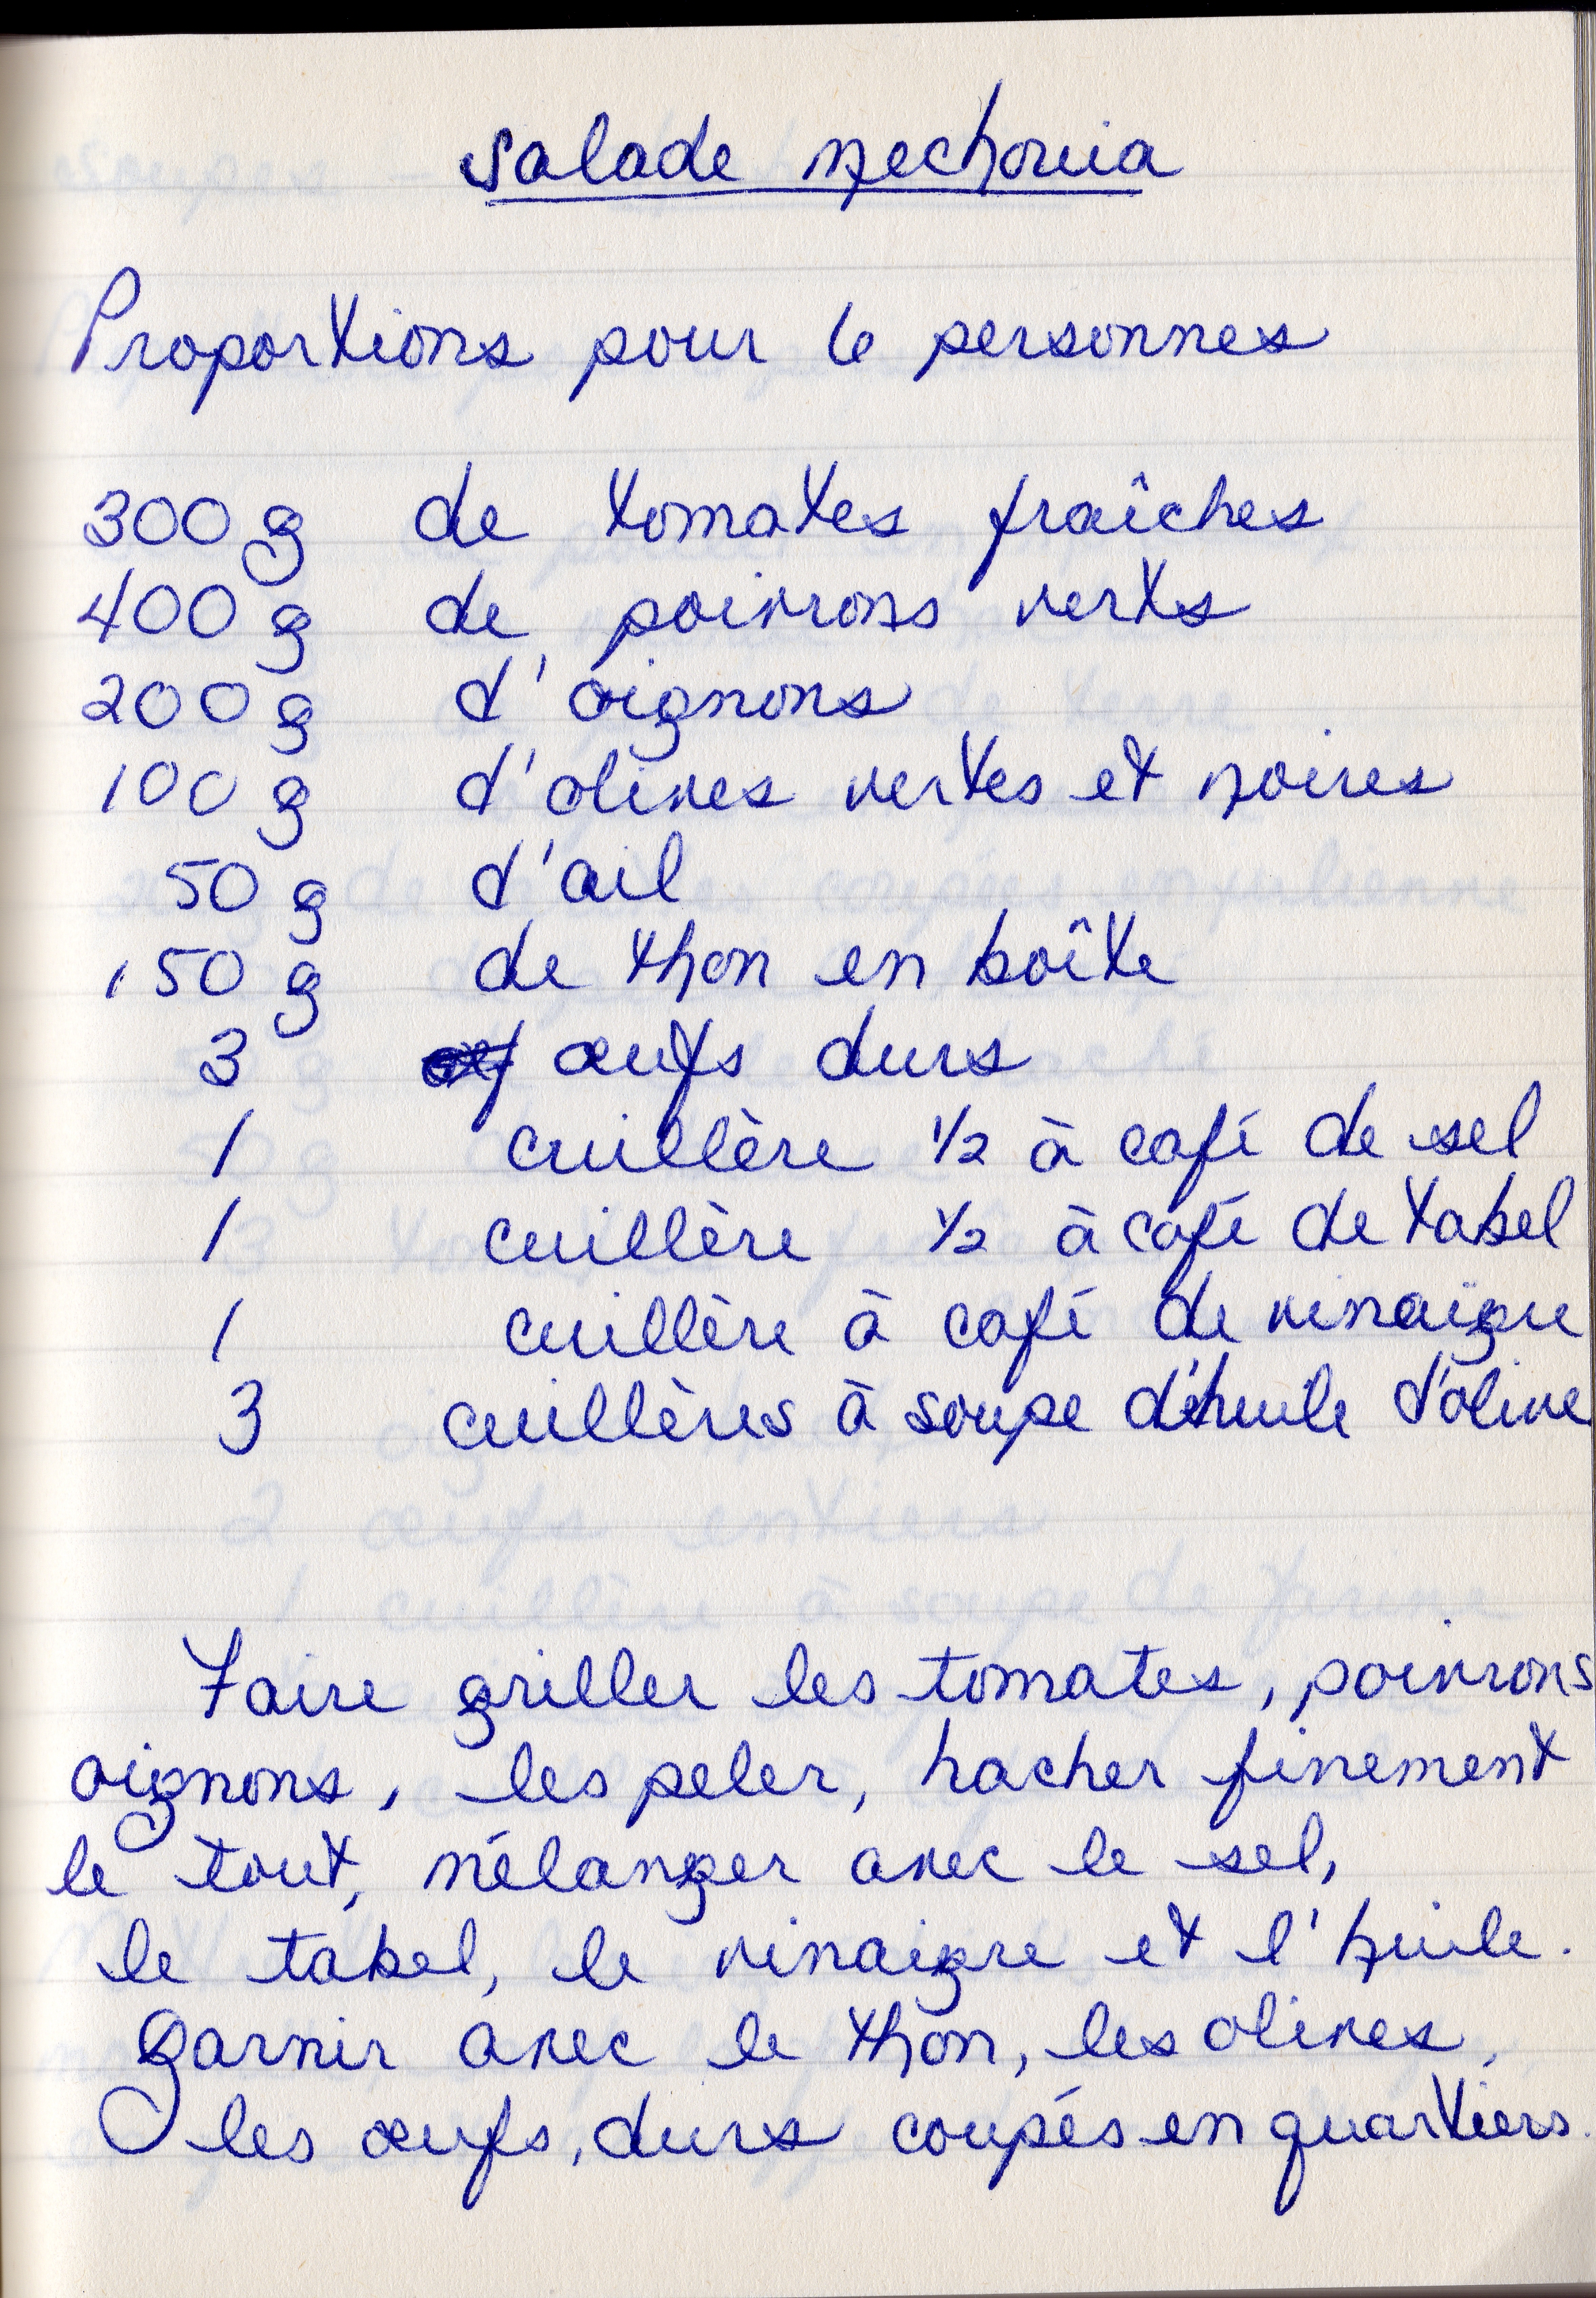 Salade mechouia
Proportions pour 6 personnes
300 g de tomates fraîches
400 g de poivrons verts
200 g d'oignons
100 g d'olives vertes et noires
50 g d'ail
150 g de thon en boîte
3 œufs durs
1 cuillère 1/2 à café de sel
1 cuillère 1/2 à café de tabel
1 cuillère à café de vinaigre
3 cuillères à soupe d'huile d'olive
Faire griller les tomates, poivrons
oignons, les peler, hacher finement
le tout, mélanger avec le sel,
le tabel, le vinaigre et l'huile.
Garnir avec le thon, les olives,
les œufs, durs coupés en quartiers.